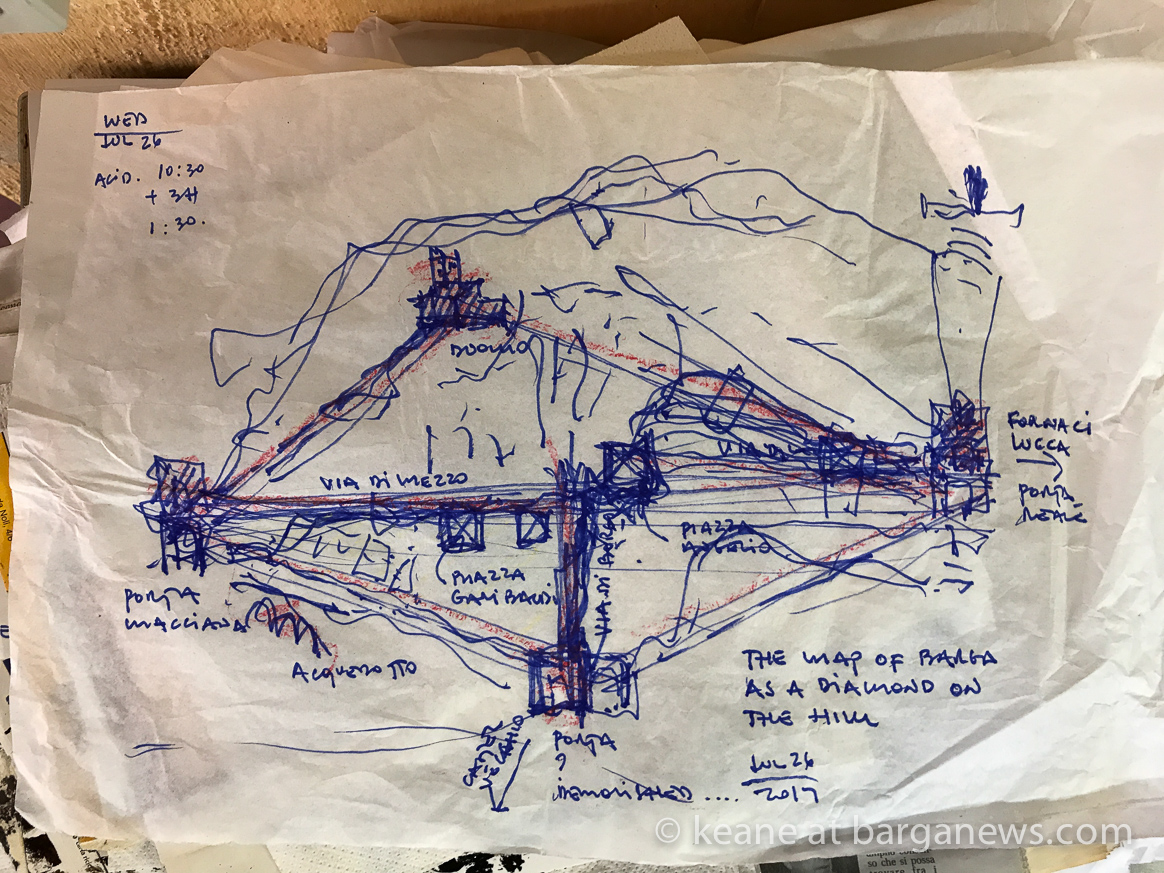 WED
JUL 26
ACID. 10:30
+ 3H
1:30.
DUOMO
VIA DI MEZZO
VIA DI
FORNACI
LUCCA
PORTA
REALE
PIAZZA
PIAZZA
GARIBALDI
VIA DI BORGO
PORTA
MACCIANA
ACQUEDOTTO
THE MAP OF BARGA
AS A DIAMOND ON
THE HILL
JUL 26
2017
VECCHIO
PORTA
?
DEMOLISHED ....
© keane at barganews.com
so che si possa